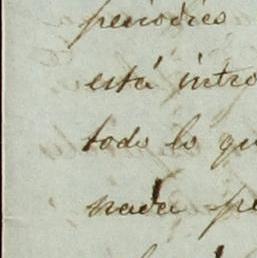 periodico
está intro
todo lo qu
nada pe